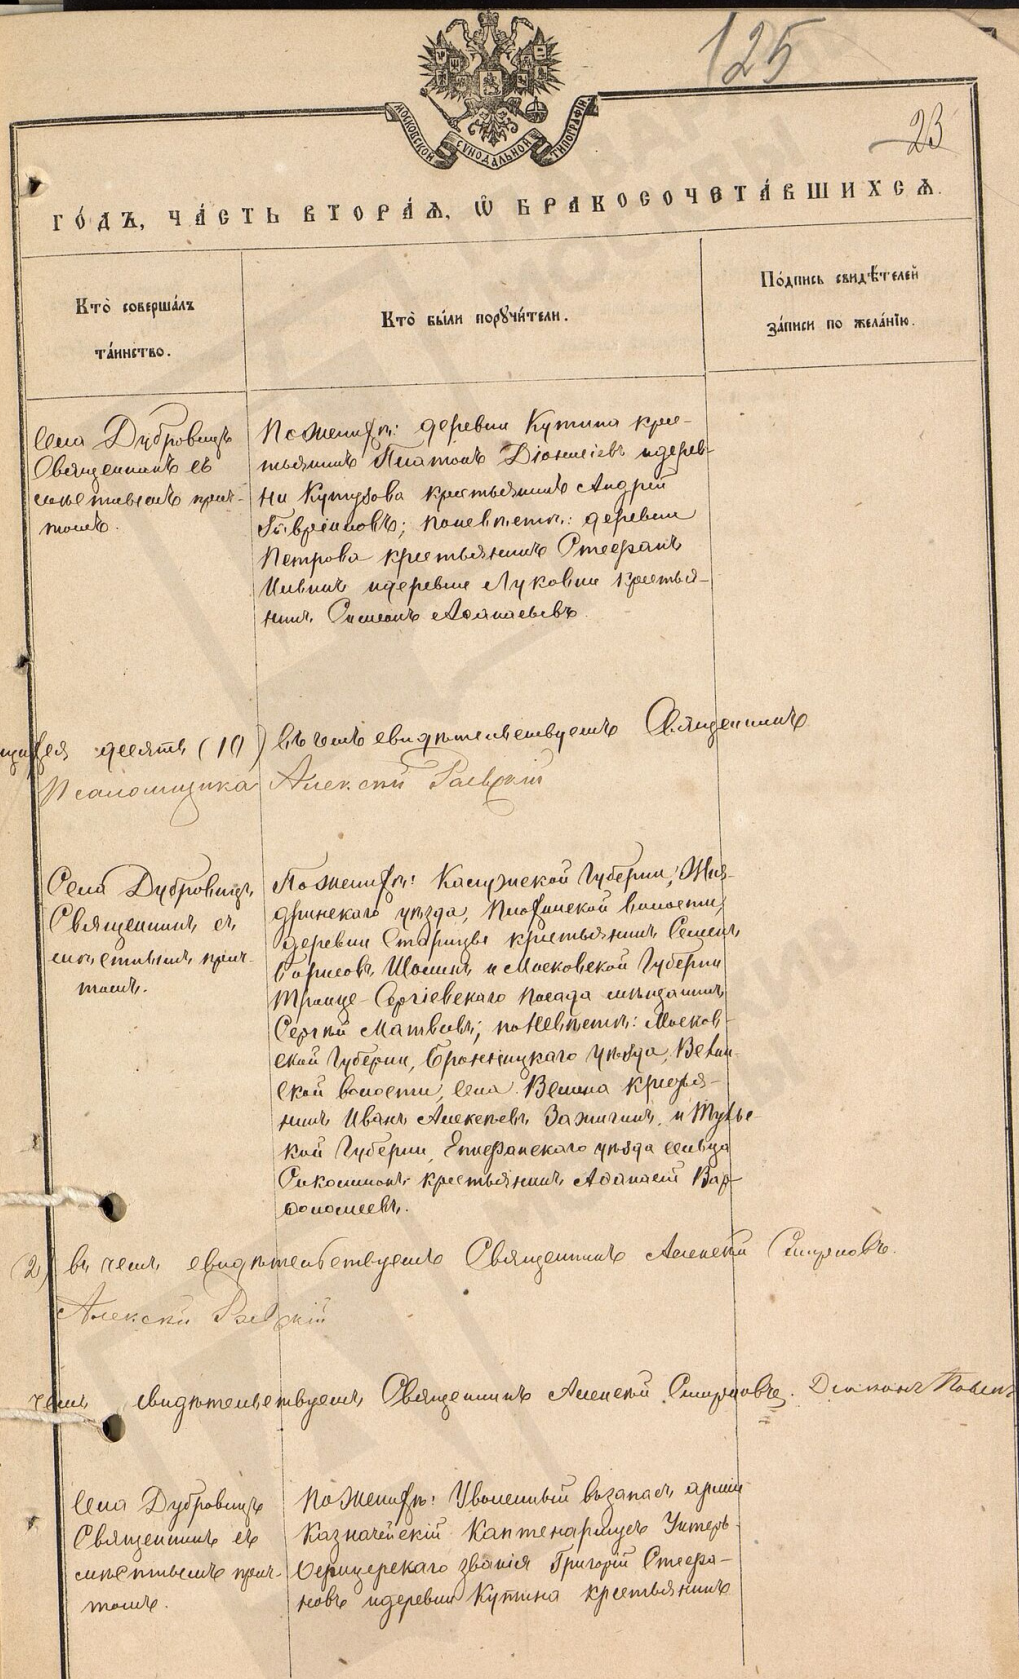 125
23
МОСКОВСКОЙ СѴНОДАЛЬНОЙ ТИПОГРАФІИ
ГО́ДЪ, ЧА́СТЬ ВТОРА́Ѧ, Ѽ БРАКОСОЧЕТА́ВШИХСѦ.
Кто̀ соверша́лъ
та́инство.
Кто̀ бы́ли порꙋчи́тели.
По́дпись свидѣ́телей
за́писи по жела́нїю.
Села Дубровицъ
Священникъ съ
мѣстнымъ прич-
томъ.
По женихѣ: деревни Кутина крес-
тьянинъ Платонъ Діонисіевъ и дерев-
ни Кутузова крестьянинъ Андрей
Гавріиловъ; по невѣстѣ: деревни
Петрова крестьянинъ Стефанъ
и деревни Луковни кресть-
нинъ Симеонъ Аѳанасьевъ
десять (10) въ чемъ свидѣтельствуемъ Священникъ
Псаломщика Алексѣй Раевскій
Села Дубровицъ
Священникъ съ
мѣстнымъ прич-
томъ.
По женихѣ: Калужской Губерніи, Жиз-
дринскаго уѣзда, Плохинской волости,
деревни Старицы крестьянинъ Семенъ
Борисовъ и Московской Губерніи
Троице-Сергіевскаго посада мѣщанинъ
Сергѣй Матвѣевъ; по невѣстѣ: Москов-
ской Губерніи, Бронницкаго уѣзда, Велин-
ской волости, села Велина кресья-
нинъ Иванъ Алексѣевъ Зажигинъ, и Тульс-
кой Губерніи, Епифанскаго уѣзда сельца
крестьянинъ Аѳанасій Вар-
ѳоломеевъ.
(2) въ чемъ свидѣтельствуемъ Священникъ Алексѣй Смирновъ.
Алексѣй Раевскій
чемъ свидѣтельствуемъ Священникъ Алексѣй Смирновъ. Діаконъ Павелъ
Села Дубровицъ
Священникъ съ
мѣстнымъ прич-
томъ.
По женихѣ: Уволенный въ запасъ арміи
Казначейскій Каптенармусъ Унтеръ-
Офицерскаго званія Григорій Стефа-
новъ и деревни Кутина крестьянинъ